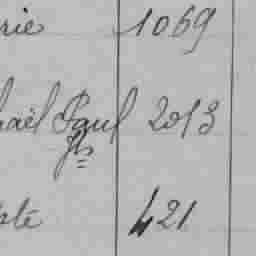 rie 1069
haël Paul 2013
fls
ste 421